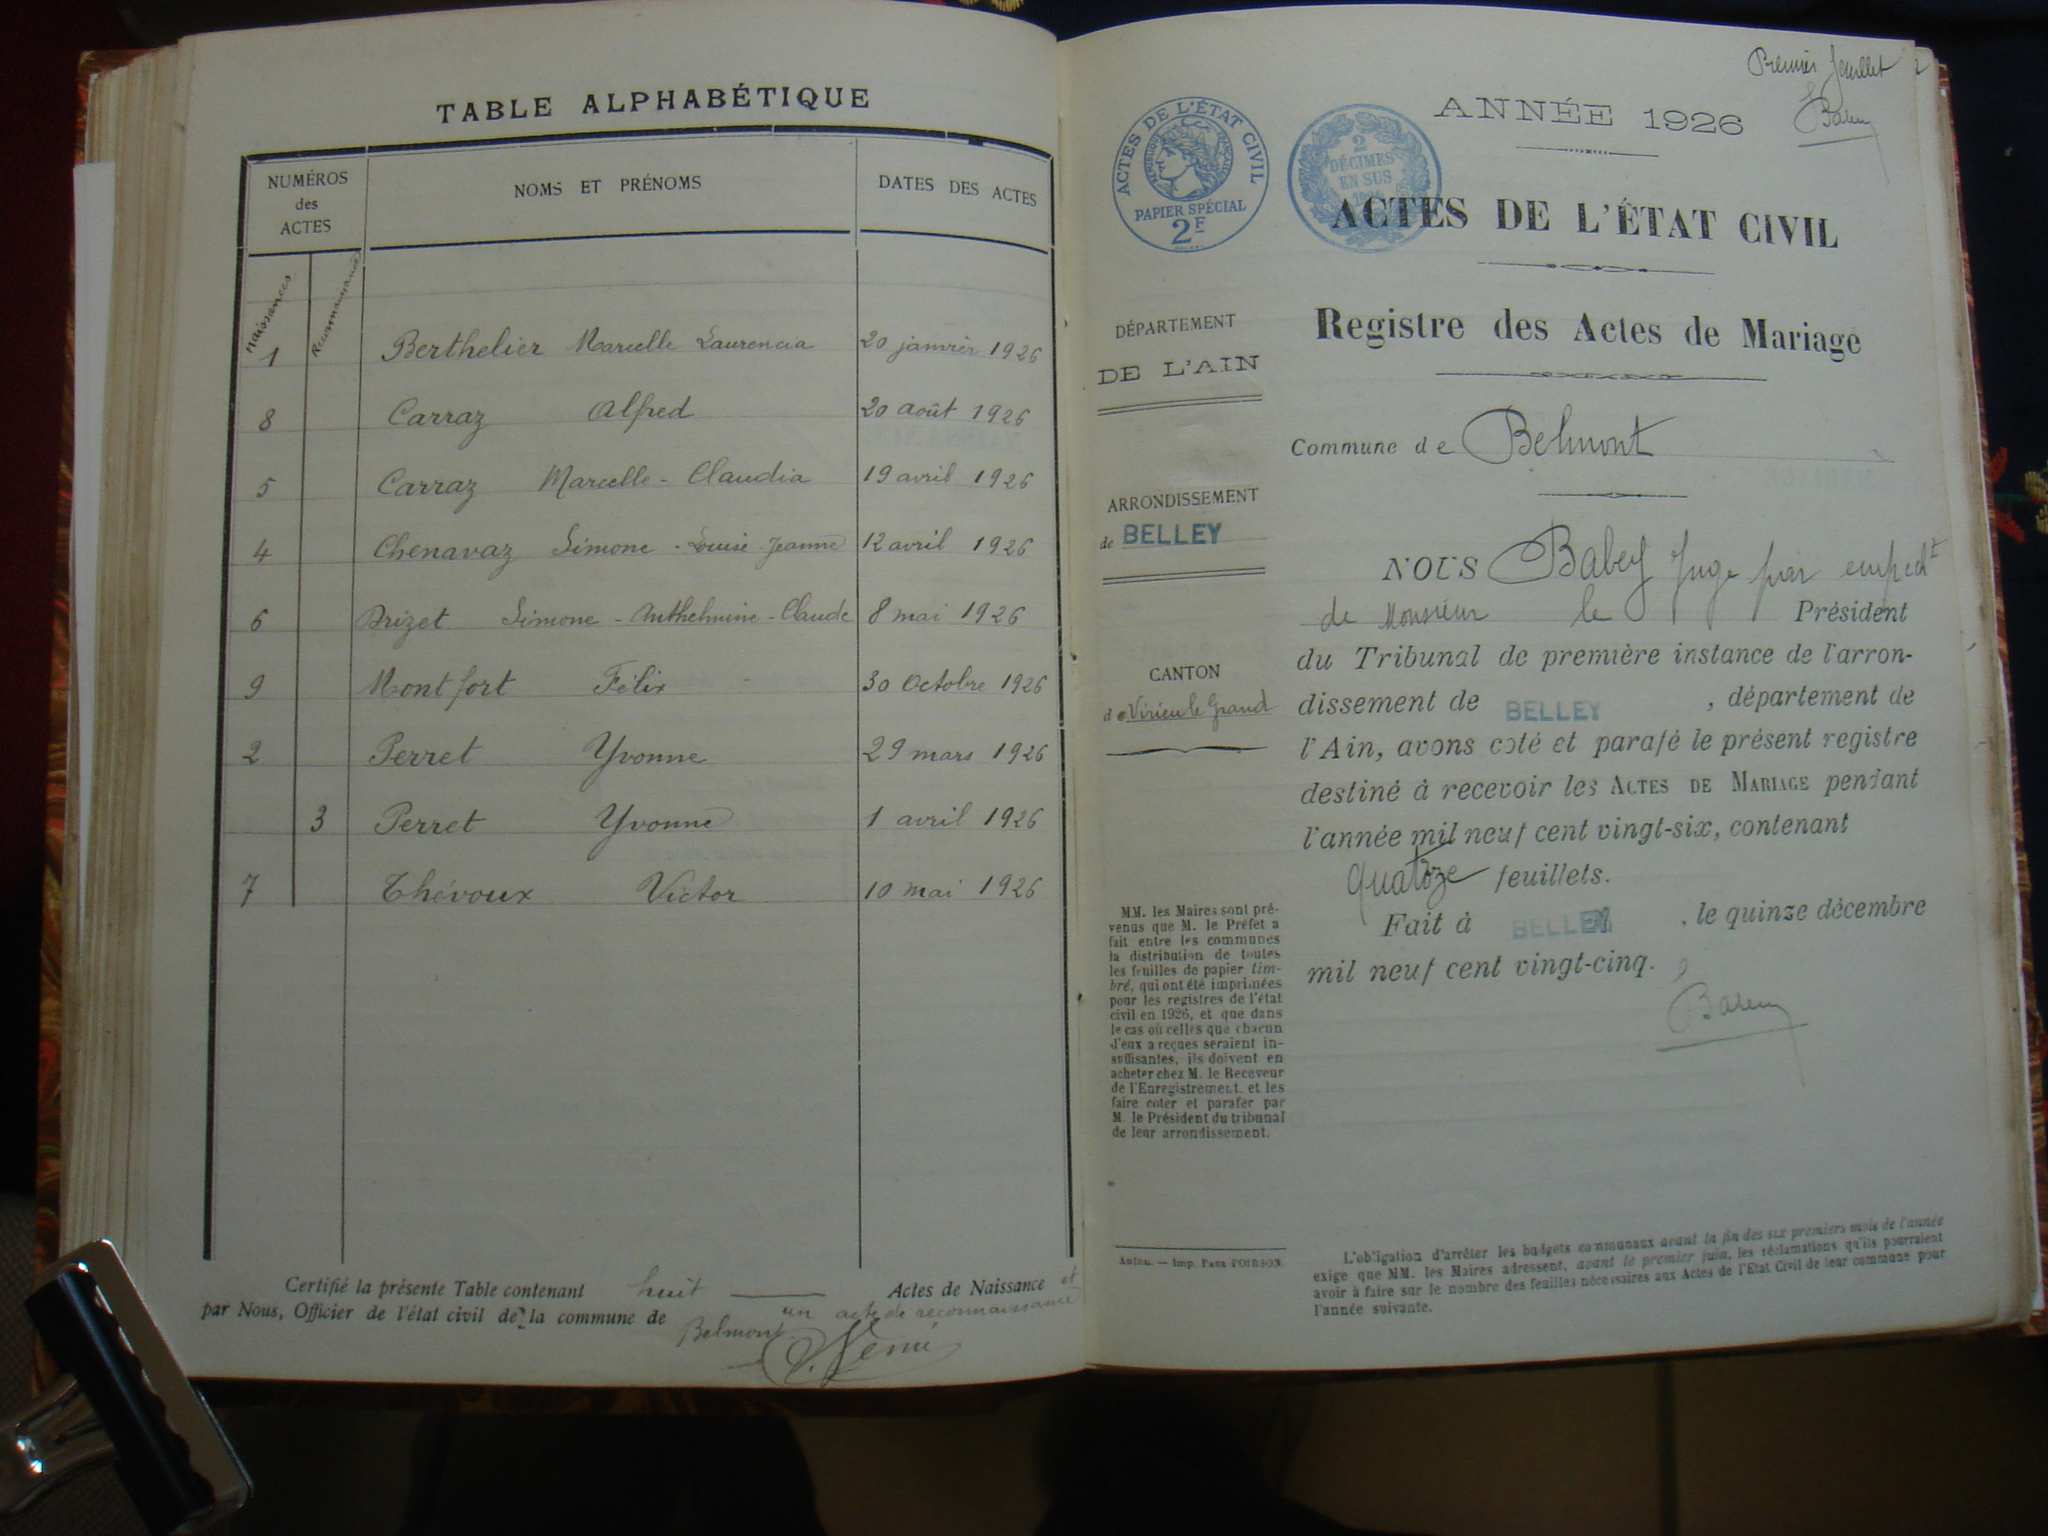 TABLE ALPHABÉTIQUE
NUMÉROS des ACTES
NOMS ET PRÉNOMS
DATES DES ACTES
Naissances
Reconnaissances
1 Berthelier Marcelle Laurencia 20 janvier 1926
8 Carraz Alfred 20 août 1926
5 Carraz Marcelle - Claudia 19 avril 1926
4 Chenavaz Simone - Louise Jeanne 12 avril 1926
6 Drizet Simone - Anthelmine - Claude 8 mai 1926
9 Montfort Félix 30 Octobre 1926
2 Perret Yvonne 29 mars 1926
3 Perret Yvonne 1 avril 1926
7 Thévoux Victor 10 mai 1926
Certifié la présente Table contenant huit Actes de Naissance et
un acte de reconnaissance
par Nous, Officier de l'état civil de la commune de Belmont
Premier feuillet
ANNÉE 1926
ACTES DE L'ÉTAT CIVIL
PAPIER SPÉCIAL
2F
2
DÉCIMES
EN SUS
ACTES DE L'ÉTAT CIVIL
Registre des Actes de Mariage
DÉPARTEMENT
DE L'AIN
Commune de Belmont
ARRONDISSEMENT
de BELLEY
CANTON
de Virieu le Grand
NOUS Babey Juge par empecht
de Monsieur le Président
du Tribunal de première instance de l'arron-
dissement de BELLEY, département de
l'Ain, avons coté et parafé le présent registre
destiné à recevoir les ACTES DE MARIAGE pendant
l'année mil neuf cent vingt-six, contenant
quatorze feuillets.
Fait à BELLEY, le quinze décembre
mil neuf cent vingt-cinq.
MM. les Maires sont pré-
venus que M. le Préfet a
fait entre les communes
la distribution de toutes
les feuilles de papier tim-
bré, qui ont été imprimées
pour les registres de l'état
civil en 1926, et que dans
le cas où celles que chacun
d'eux a reçues seraient in-
suffisantes, ils doivent en
acheter chez M. le Receveur
de l'Enregistrement et les
faire coter et parafer par
M. le Président du tribunal
de leur arrondissement.
L'obligation d'arrêter les budgets communaux avant la fin des six premiers mois de l'année
exige que MM. les Maires adressent, avant le premier juin, les réclamations qu'ils pourraient
avoir à faire sur le nombre des feuilles nécessaires aux Actes de l'État Civil de leur commune pour
l'année suivante.